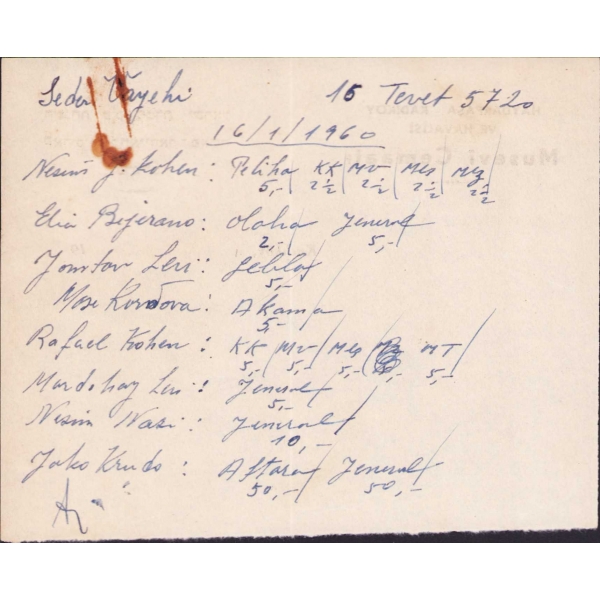 Seder Vayehi 15 Tevet 5720
16/1/1960
Nesim J. Kohen: Peliha KK MV Mes Mez
5,- 2½ 2½ 2½ 2½
Elia Bejerano: olaha Jeneral
2,- 5,-
Jomtov Levi: Gelila
5,-
Mose Kordova: Akama
5,-
Rafael Kohen: KK MV Mes MT
5,- 5,- 5,- 5,-
Mordehay Levi: Jeneral
5,-
Nesim Nasi: Jeneral
10,-
Jako Krudo: Aftara Jeneral
50,- 50,-